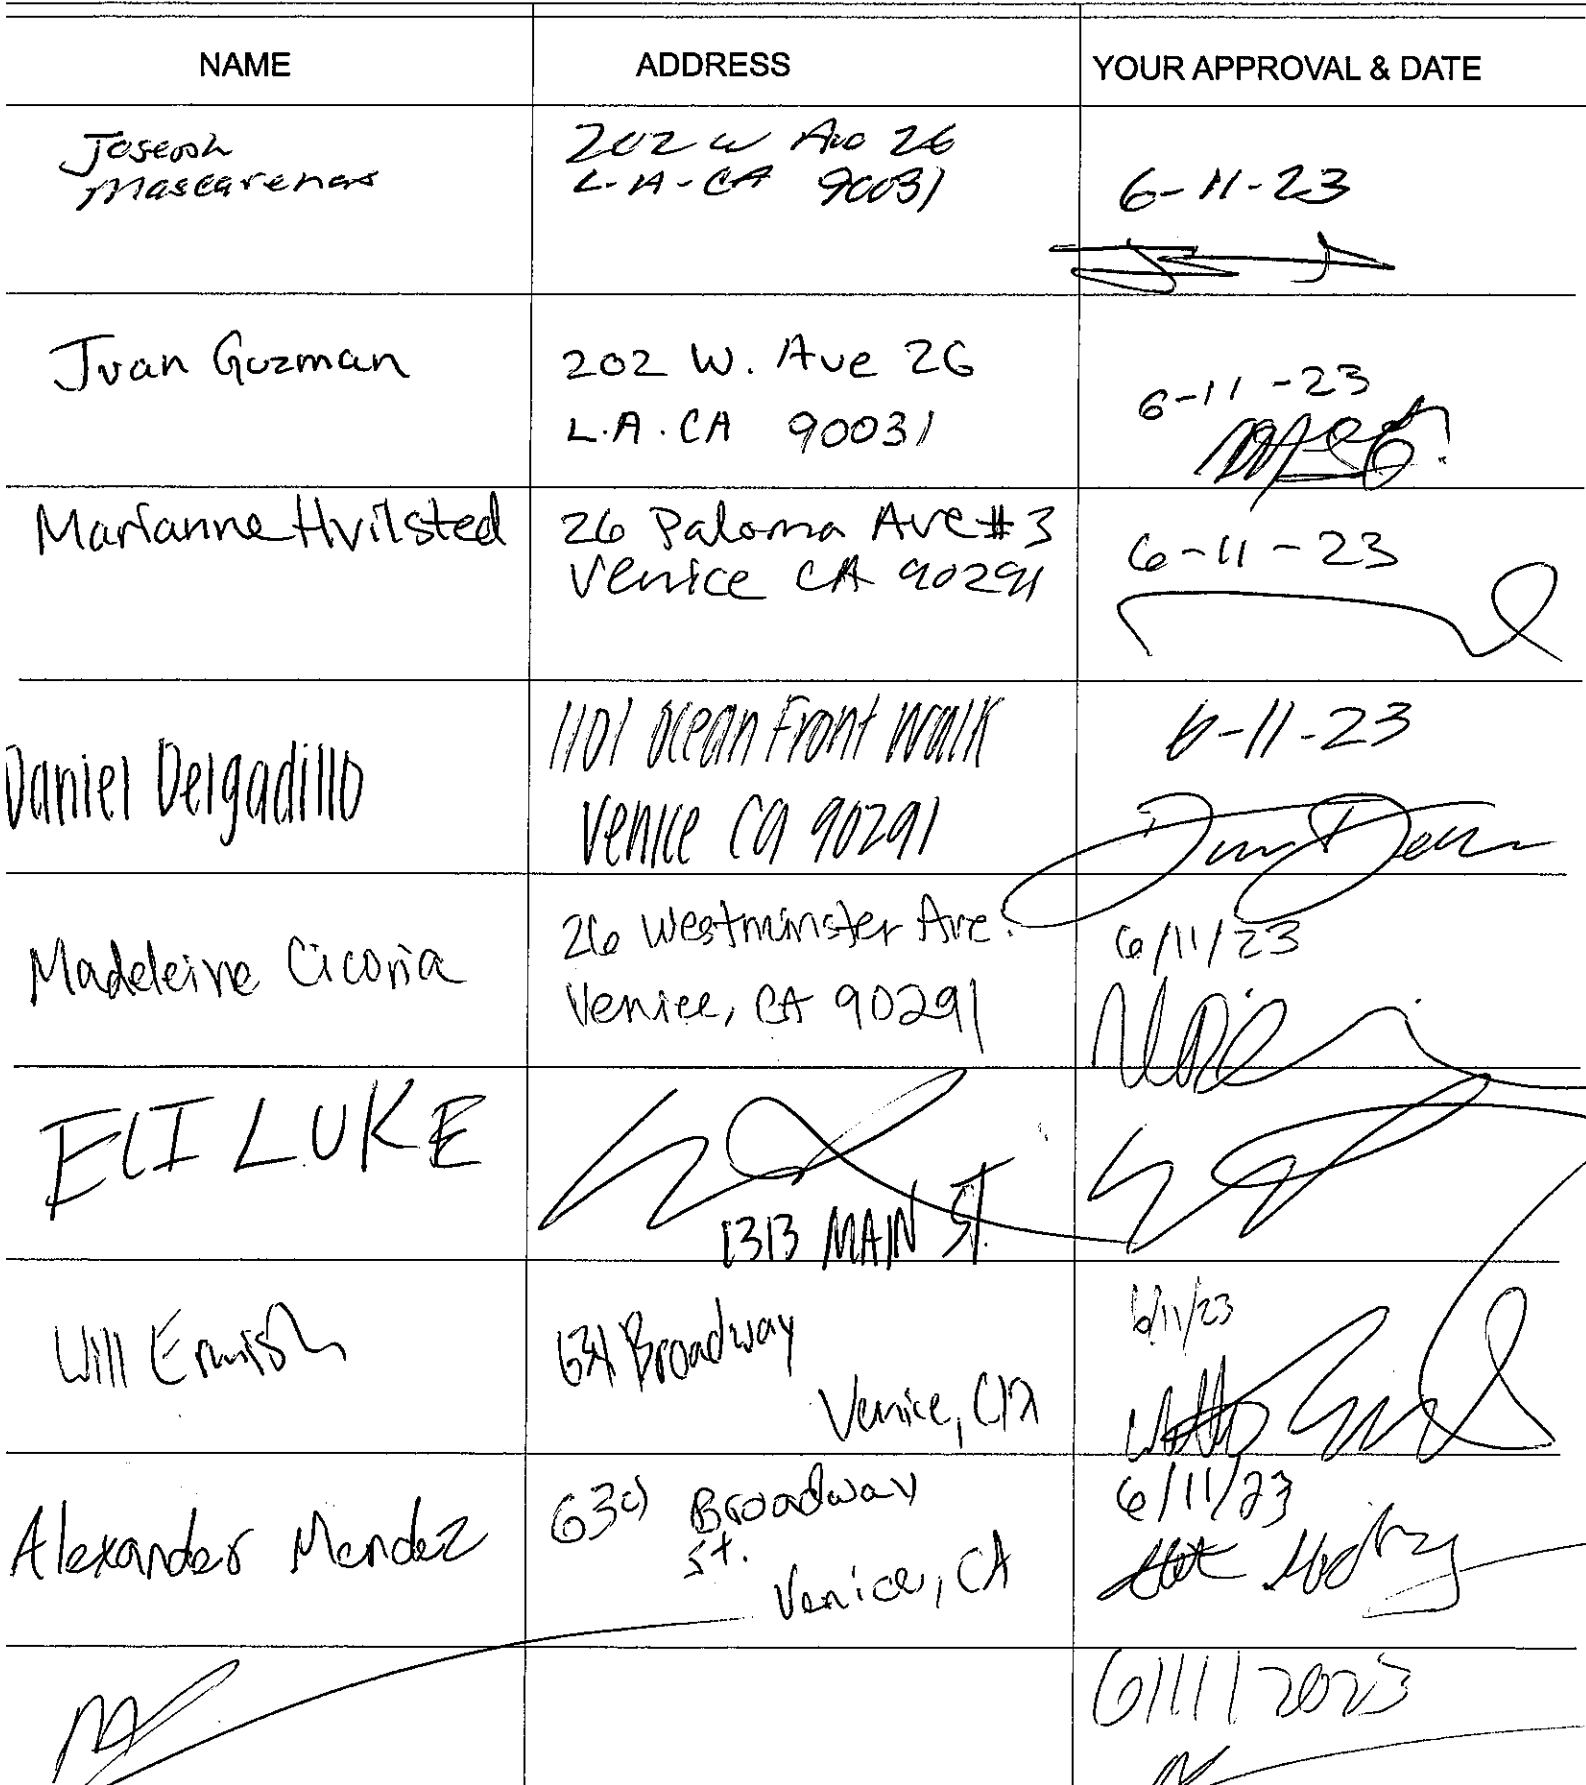 NAME ADDRESS YOUR APPROVAL & DATE
Joseph
Mascarenas
202 W Ave 26
L-A-CA 90031
6-11-23
Juan Guzman
202 W. Ave 26
L.A. CA 90031
6-11-23
Marianne Hvilsted
26 Paloma Ave #3
Venice CA 90291
6-11-23
Daniel Delgadillo
1101 Ocean Front Walk
Venice CA 90291
6-11-23
Madeleine Cicoria
26 Westminster Ave.
Venice, CA 90291
6/11/23
ELI LUKE
1313 MAIN ST.
Will Ermish
Broadway
Venice, CA
6/11/23
Alexander Mendez
Broadway
St.
Venice, CA
6/11/23
6/11/2023